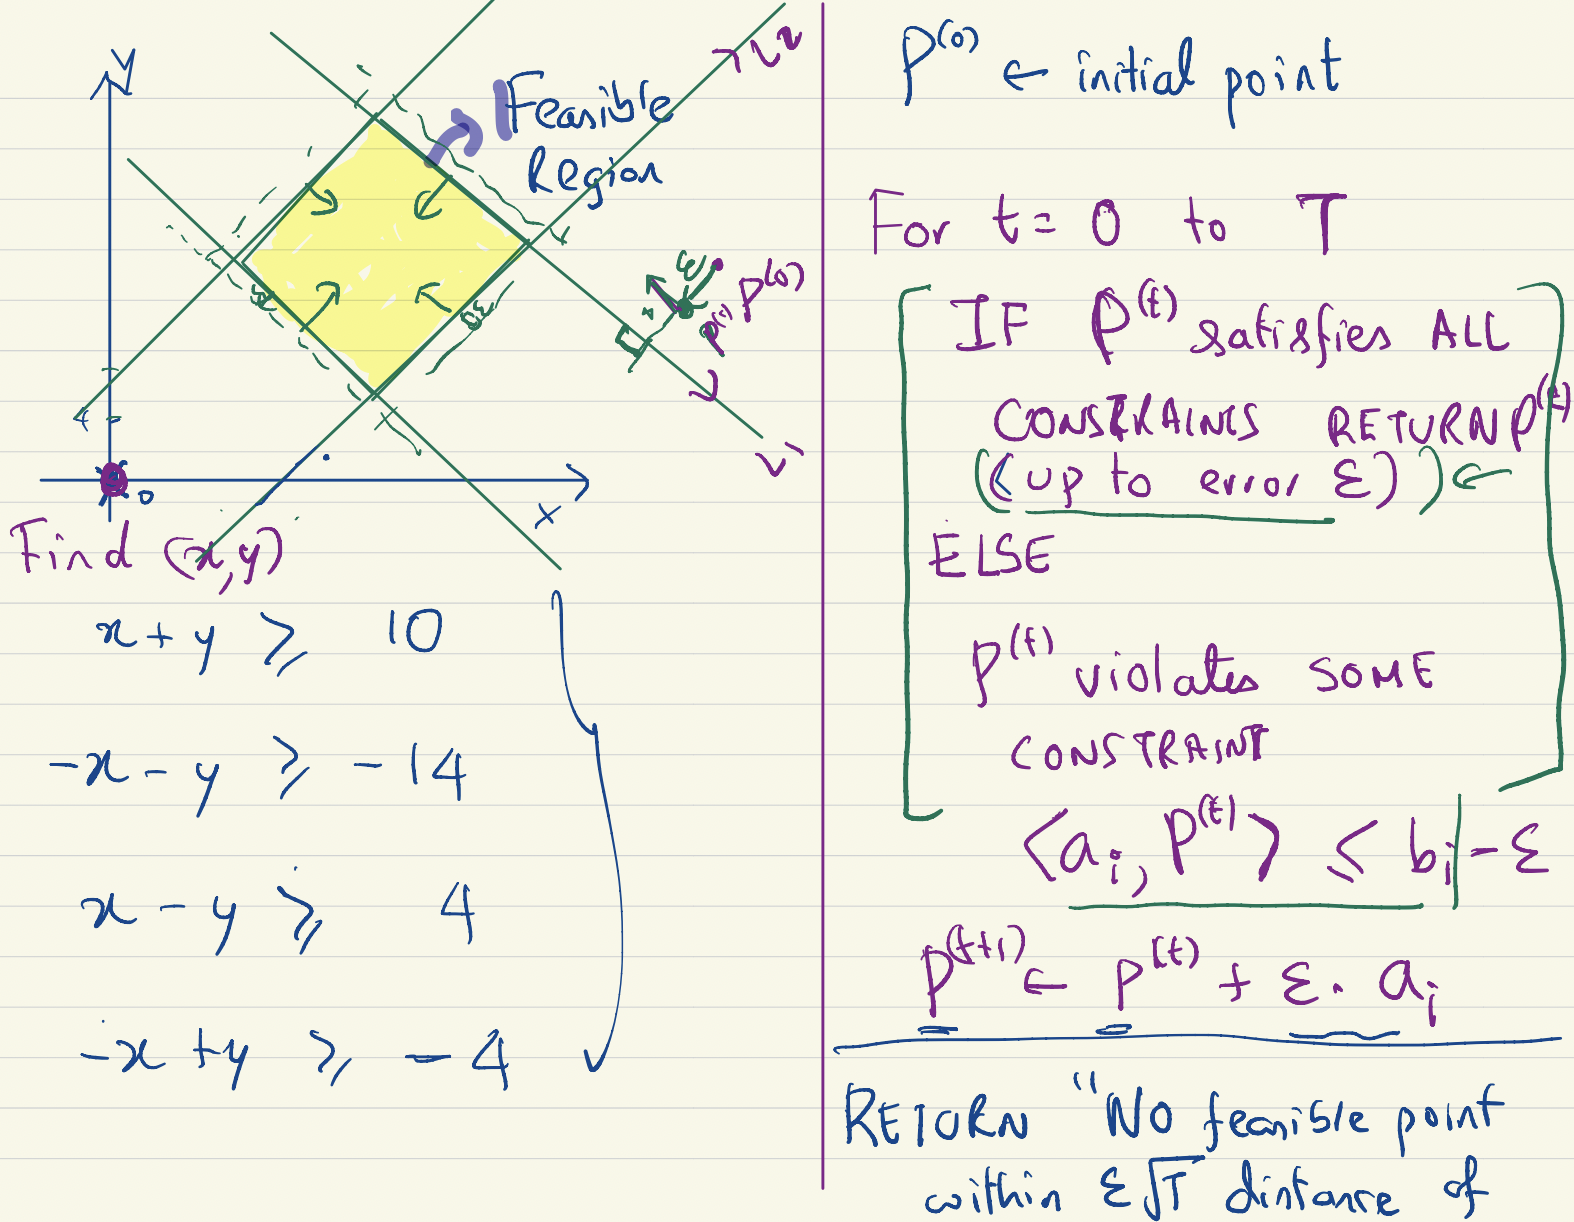 y
Feasible
Region
ε
P^(0)
P^(1)
4
0
x
Find (x,y)
x + y ≥ 10
-x - y ≥ -14
x - y ≥ 4
-x + y ≥ -4
P^(0) ← initial point
For t = 0 to T
IF P^(t) satisfies ALL
CONSTRAINTS RETURN P^(t)
(up to error ε) ←
ELSE
P^(t) violates SOME
CONSTRAINT
⟨a_i, P^(t)⟩ ≤ b_i - ε
P^(t+1) ← P^(t) + ε · a_i
RETURN "No feasible point
within ε√T distance of